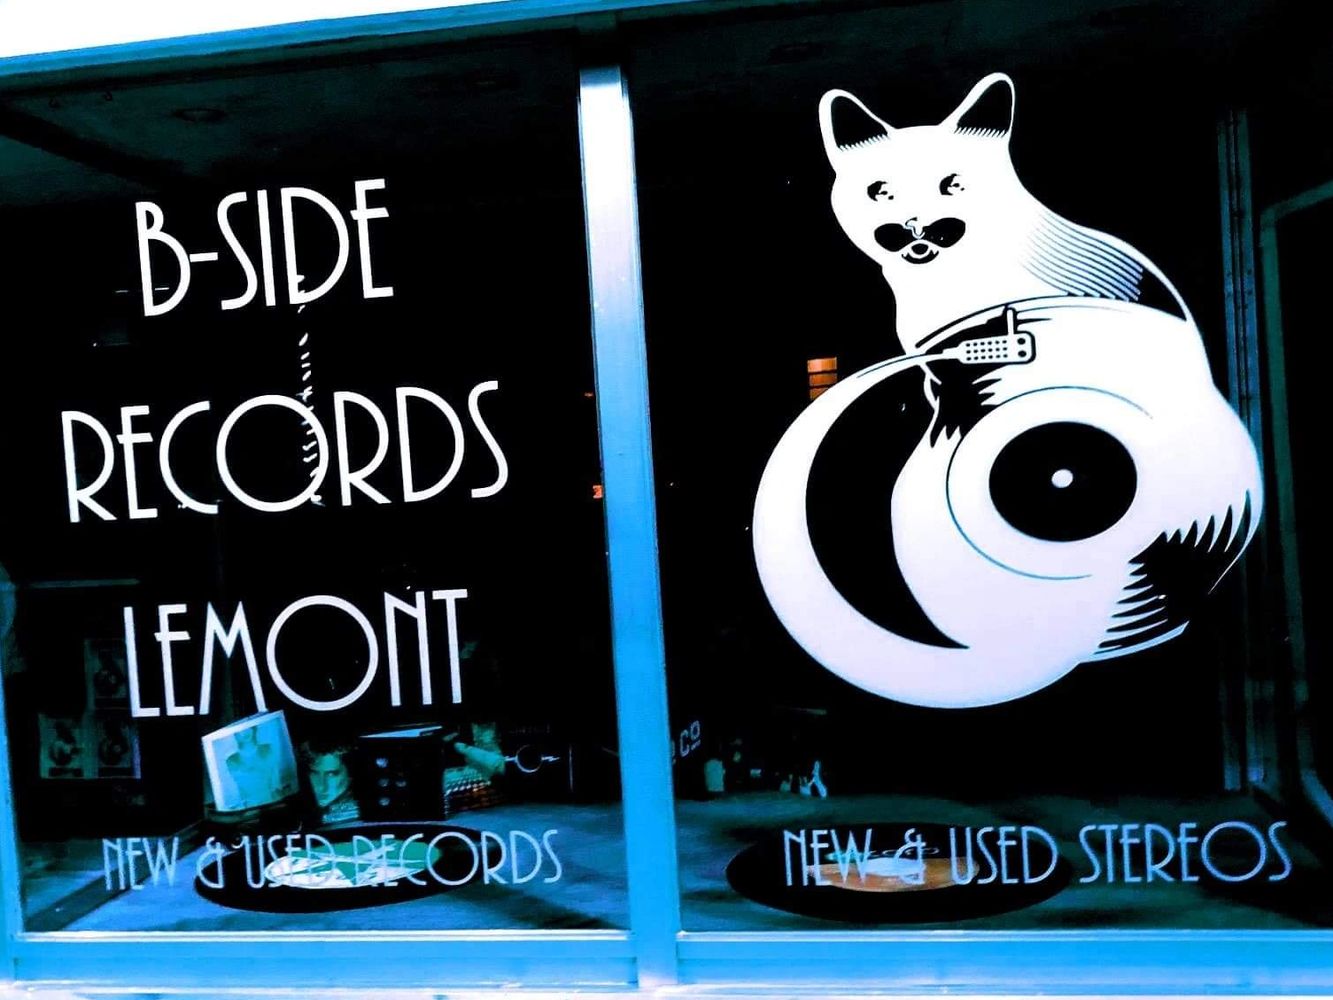 B-SIDE
RECORDS
LEMONT
NEW & USED RECORDS
CO
NEW & USED STEREOS